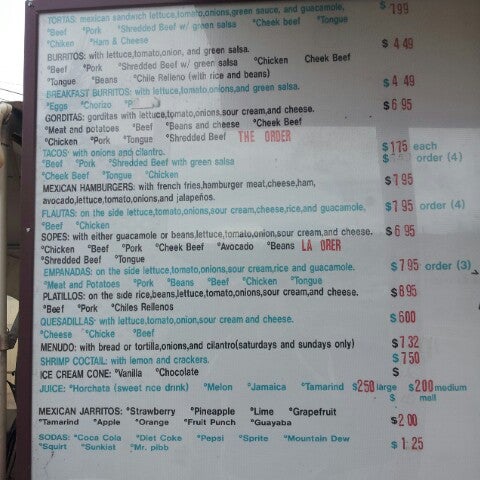 TORTAS: mexican sandwich lettuce,tomato,onions,green sauce, and guacamole. $ 7.99
°Beef °Pork °Shredded Beef w/ green salsa °Cheek beef °Tongue
°Chiken °Ham & Cheese
BURRITOS: with lettuce,tomato,onion, and green salsa. $ 4.49
°Beef °Pork °Shredded Beef w/ green salsa °Chicken Cheek Beef
°Tongue °Beans °Chile Relleno (with rice and beans)
BREAKFAST BURRITOS: with lettuce,tomato,onions,and green salsa. $ 4.49
°Eggs °Chorizo
GORDITAS: gorditas with lettuce,tomato,onions,sour cream,and cheese. $ 6.95
°Meat and potatoes °Beef °Beans and cheese °Cheek Beef
°Chicken °Pork °Tongue °Shredded Beef THE ORDER
TACOS: with onions and cilantro. $1.75 each
°Beef °Pork °Shredded Beef with green salsa $ order (4)
°Cheek Beef °Tongue °Chicken
MEXICAN HAMBURGERS: with french fries,hamburger meat,cheese,ham, $ 7.95
avocado,lettuce,tomato,onions,and jalapeños.
FLAUTAS: on the side lettuce,tomato,onions,sour cream,cheese,rice,and guacamole, $ 7.95 order (4)
°Beef °Chicken
SOPES: with either guacamole or beans,lettuce,tomato,onion,sour cream,and cheese. $ 6.95
°Chicken °Beef °Pork °Cheek Beef °Avocado °Beans LA ORER
°Shredded Beef °Tongue
EMPANADAS: on the side lettuce,tomato,onions,sour cream,rice and guacamole. $ 7.95 order (3)
°Meat and Potatoes °Pork °Beans °Beef °Chicken °Tongue
PLATILLOS: on the side rice,beans,lettuce,tomato,onions,sour cream,and cheese. $ 8.95
°Beef °Pork °Chiles Rellenos
QUESADILLAS: with lettuce,tomato,onion,sour cream and cheese. $ 6.00
°Cheese °Chicke °Beef
MENUDO: with bread or tortilla,onions,and cilantro(saturdays and sundays only) $ 7.32
SHRIMP COCTAIL: with lemon and crackers. $ 7.50
ICE CREAM CONE: °Vanilla °Chocolate $
JUICE: °Horchata (sweet rice drink) °Melon °Jamaica °Tamarind $2.50 large $2.00 medium
$ mall
MEXICAN JARRITOS: °Strawberry °Pineapple °Lime °Grapefruit
°Tamarind °Apple °Orange °Fruit Punch °Guayaba $ 2.00
SODAS: °Coca Cola °Diet Coke °Pepsi °Sprite °Mountain Dew
°Squirt °Sunkist °Mr. pibb $ 1.25